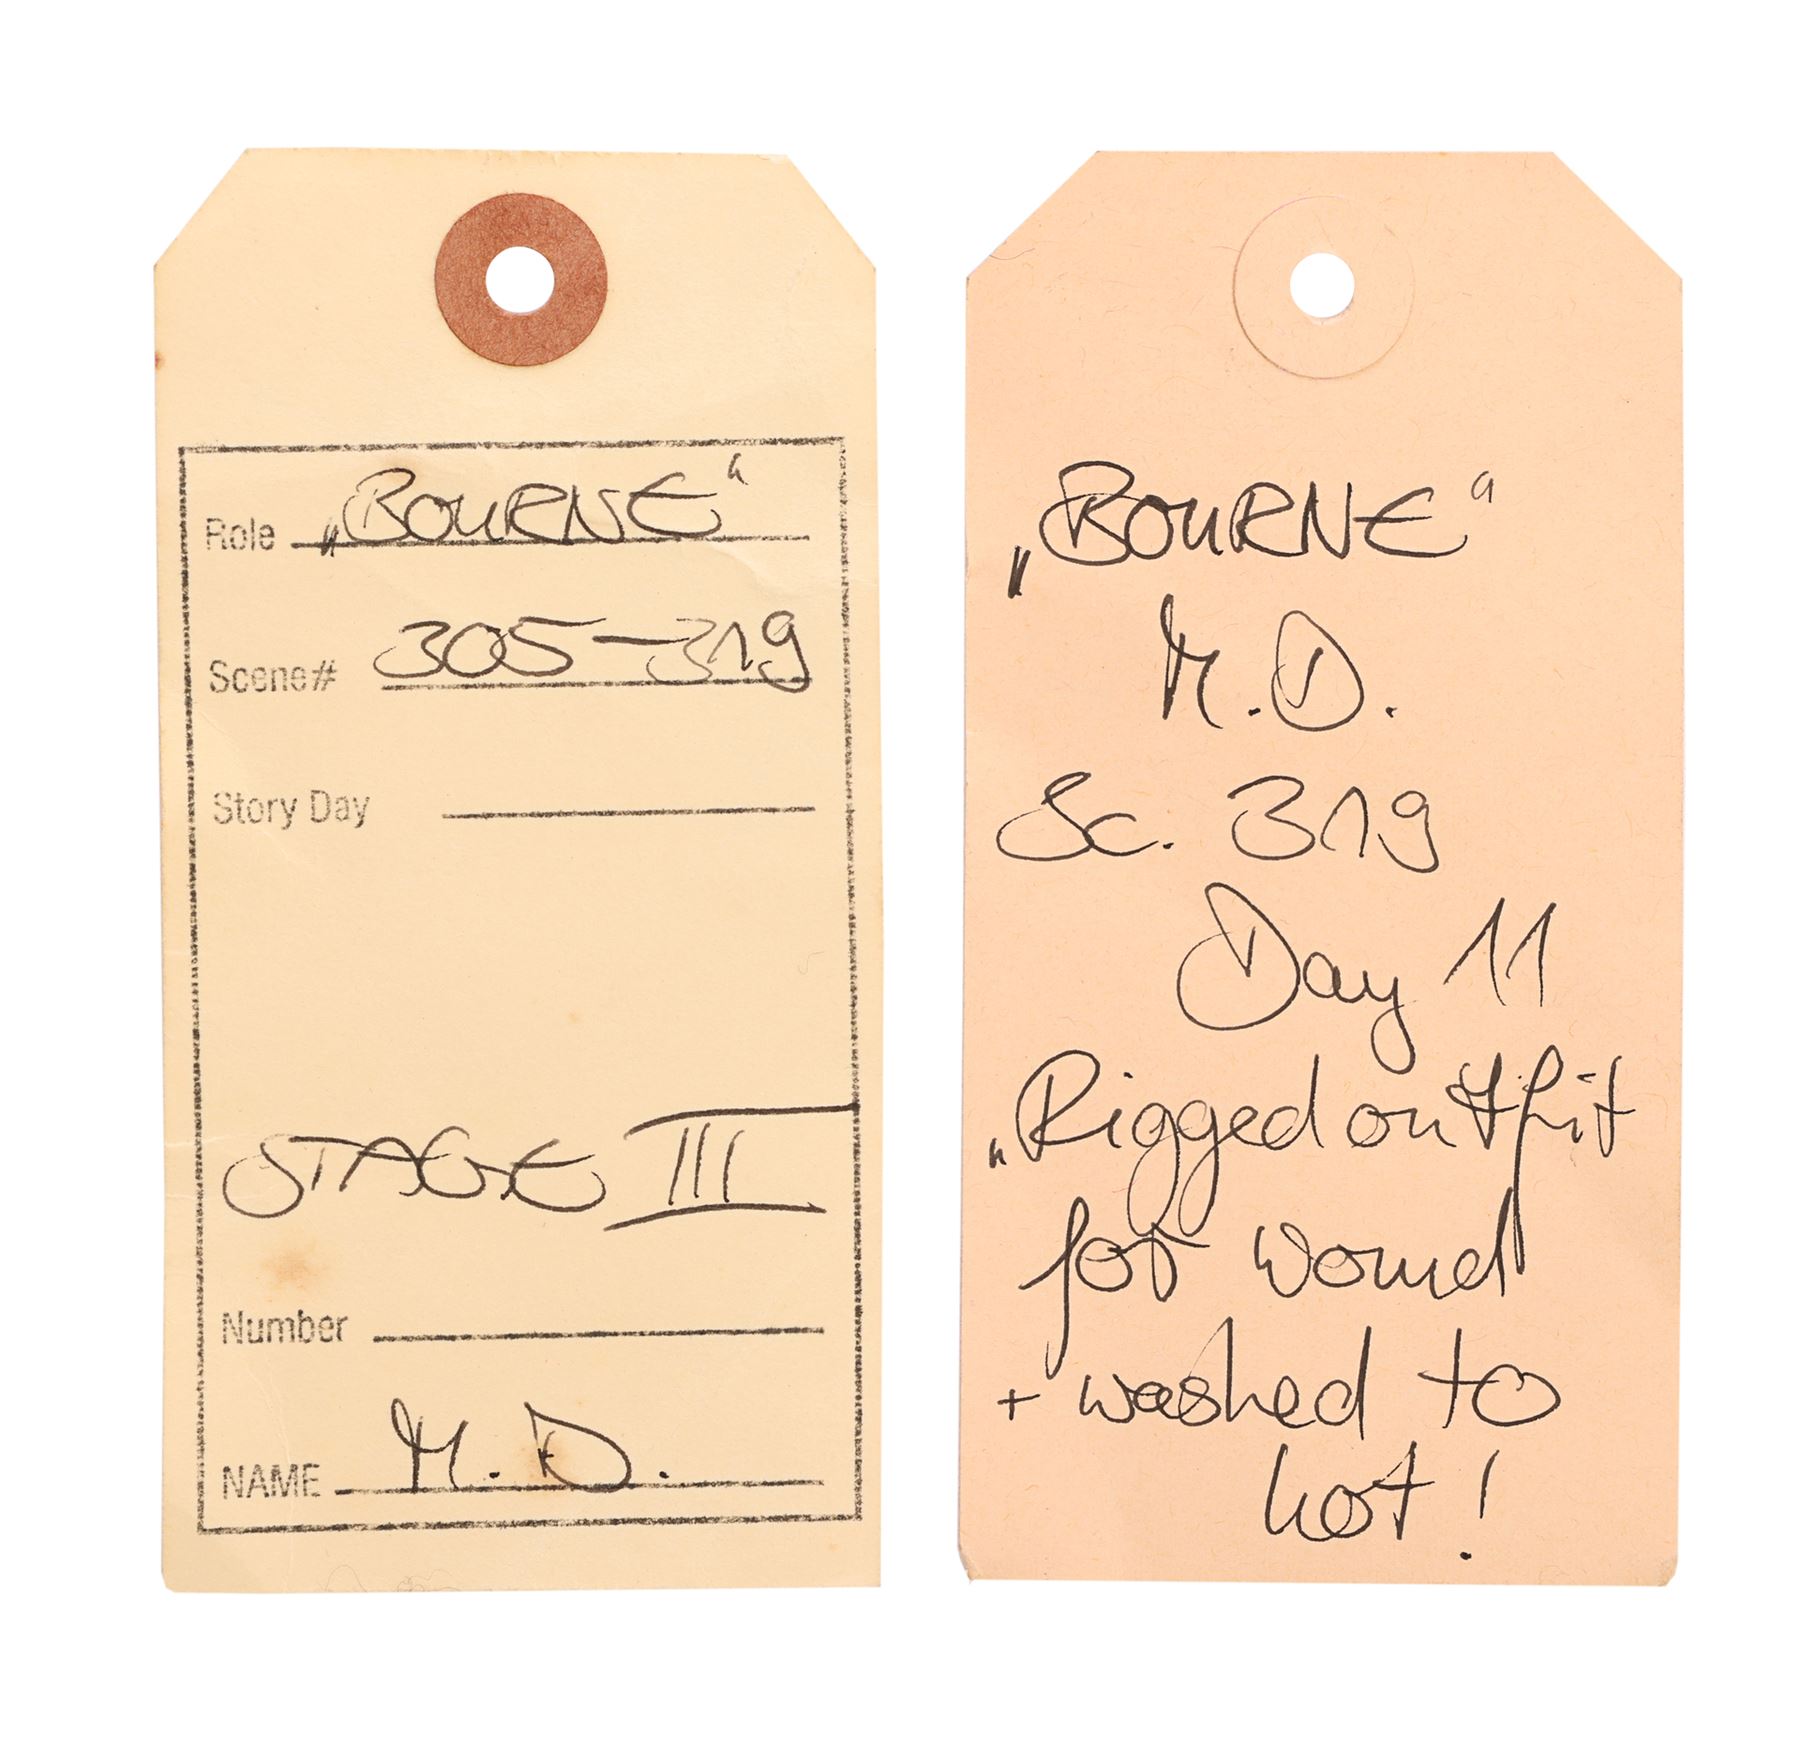 Role „BOURNE“
Scene# 305-319
Story Day
STAGE III
Number
NAME M. D.
„BOURNE“
M. D.
Sc. 319
Day 11
„Rigged outfit
for wound
+ washed to
hot!